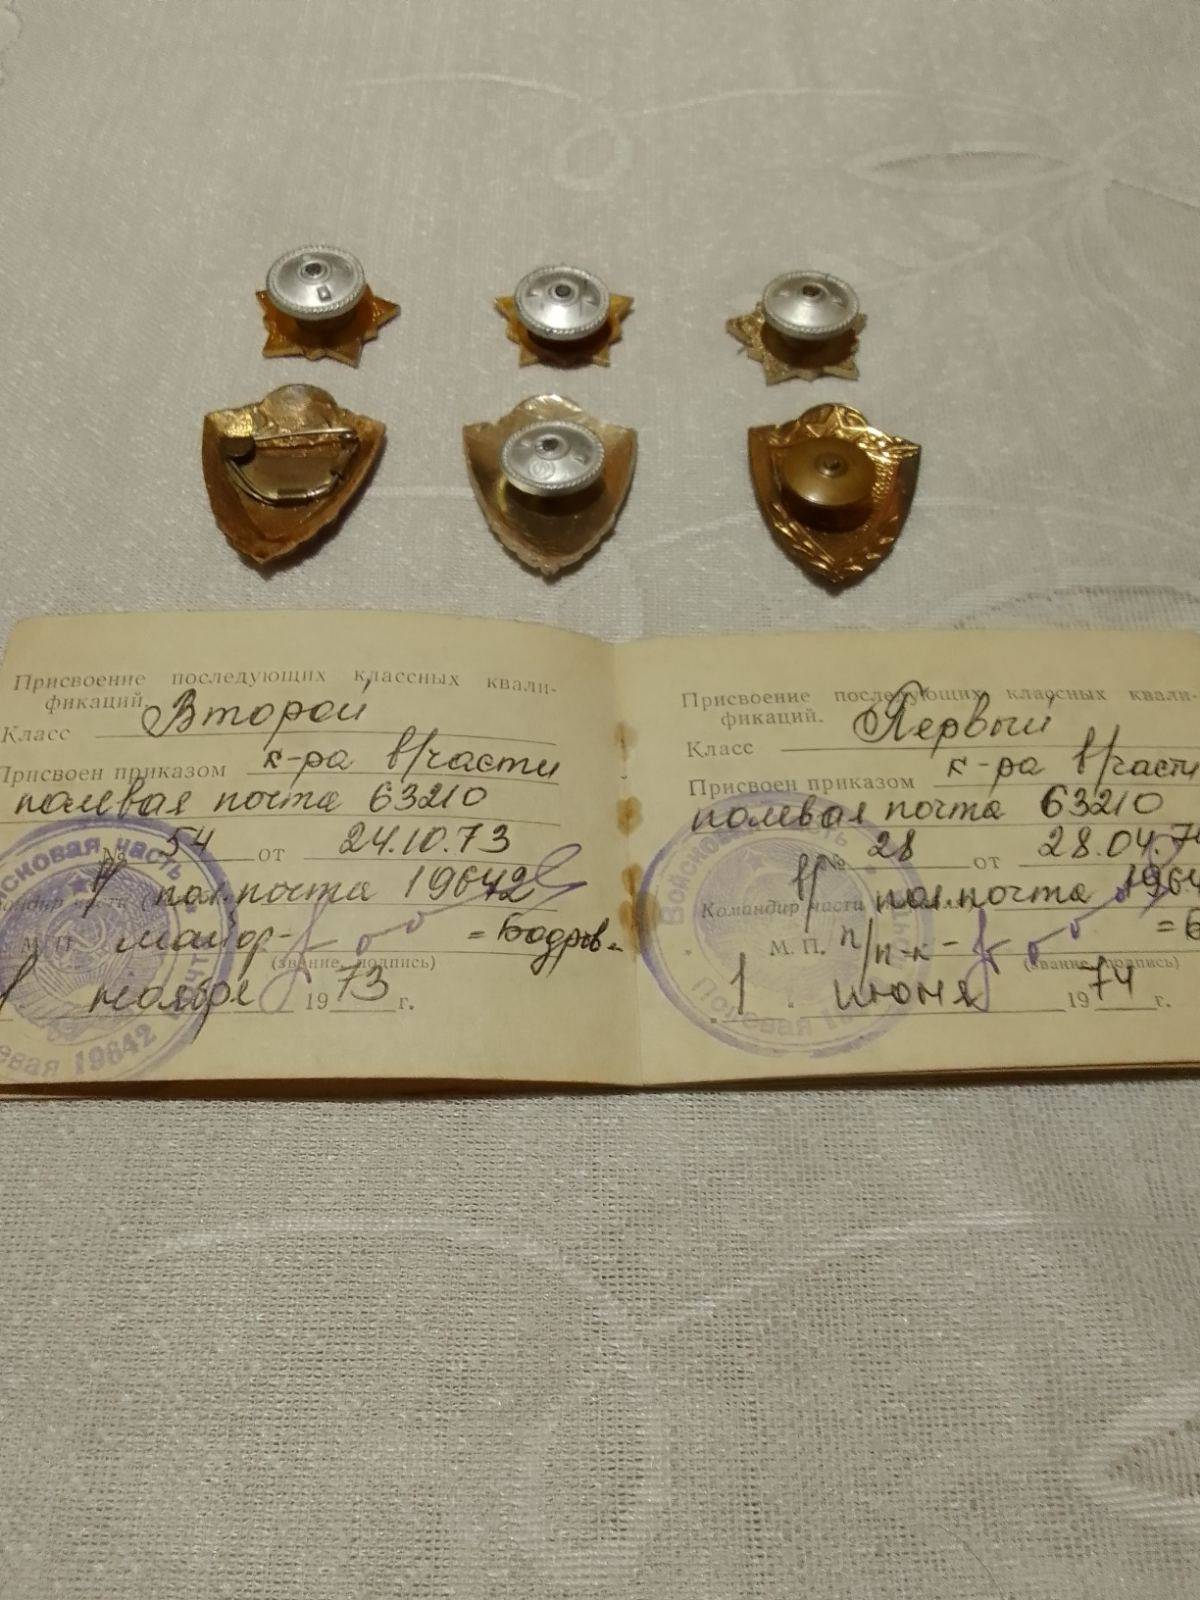 Присвоение последующих классных квали-
фикаций.
Класс Второй
Присвоен приказом к-ра в/части
полевая почта 63210
№ 54 от 24.10.73
Командир части в/ пол.почта 19642
М. П. майор- =Бодров=
(звание, подпись)
1 ноября 1973 г.
Войсковая часть
Полевая 19642
Присвоение последующих классных квали-
фикаций.
Класс Первый
Присвоен приказом к-ра в/части
полевая почта 63210
№ 28 от 28.04.74
Командир части в/ пол.почта 1964
М. П. п/п-к- =Б
(звание, подпись)
1 июня 1974 г.
Войсковая часть
Полевая